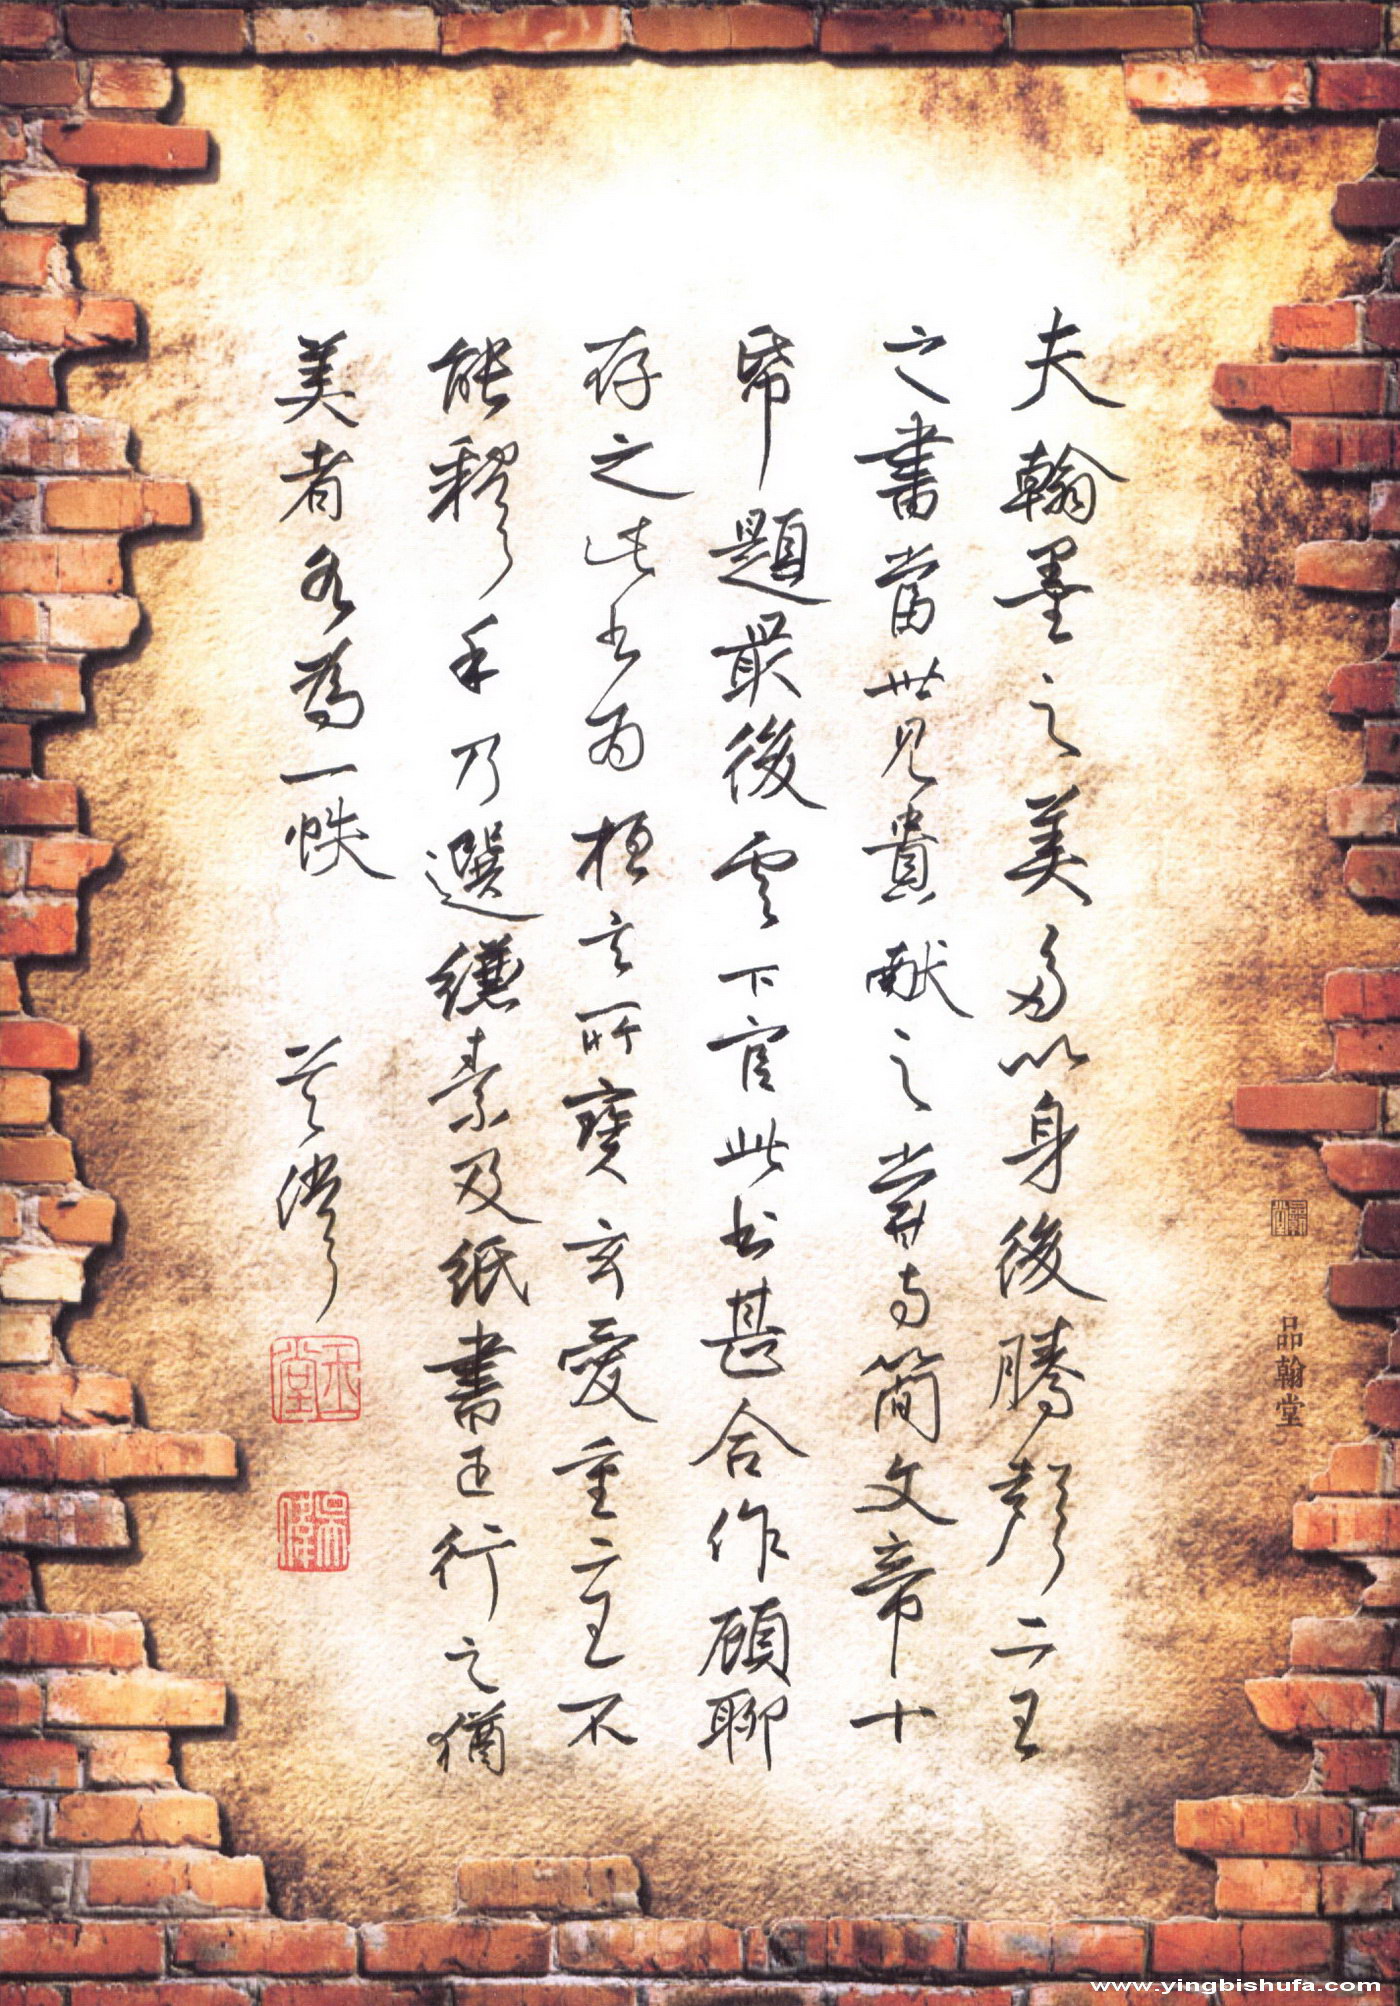 夫翰墨之美多以身後騰聲二王
之書當世見貴献之嘗与簡文帝十
帋題最後雲下官此書甚合作願聊
存之此書為桓玄所寶玄愛重二王不
能釋手乃選縑素及紙書正行之猶
美者各為一帙
品翰堂
www.yingbishufa.com